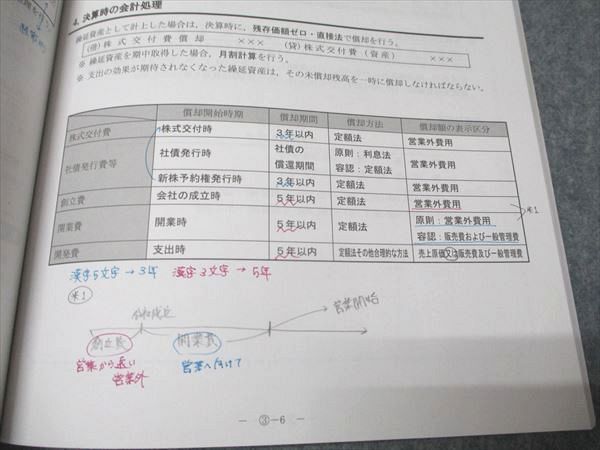 4. 決算時の会計処理
繰延資産として計上した場合は，決算時に，残存価額ゼロ・直接法で償却を行う。
(借) 株式交付費償却 ××× (貸) 株式交付費（資産） ×××
※ 繰延資産を期中取得した場合，月割計算を行う。
※ 支出の効果が期待されなくなった繰延資産は，その未償却残高を一時に償却しなければならない。
償却開始時期 償却期間 償却方法 償却額の表示区分
株式交付費 株式交付時 3年以内 定額法 営業外費用
社債発行費等 社債発行時 社債の償還期間 原則：利息法 容認：定額法 営業外費用
新株予約権発行時 3年以内 定額法 営業外費用
創立費 会社の成立時 5年以内 定額法 営業外費用
※1
開業費 開業時 5年以内 定額法 原則：営業外費用
容認：販売費および一般管理費
開発費 支出時 5年以内 定額法その他合理的な方法 売上原価又は販売費及び一般管理費
漢字5文字→3年 漢字3文字→5年
※1
会社成立 営業開始
創立費 開業費
営業から遠い 営業へ向けて
営業外
― ③－6 ―